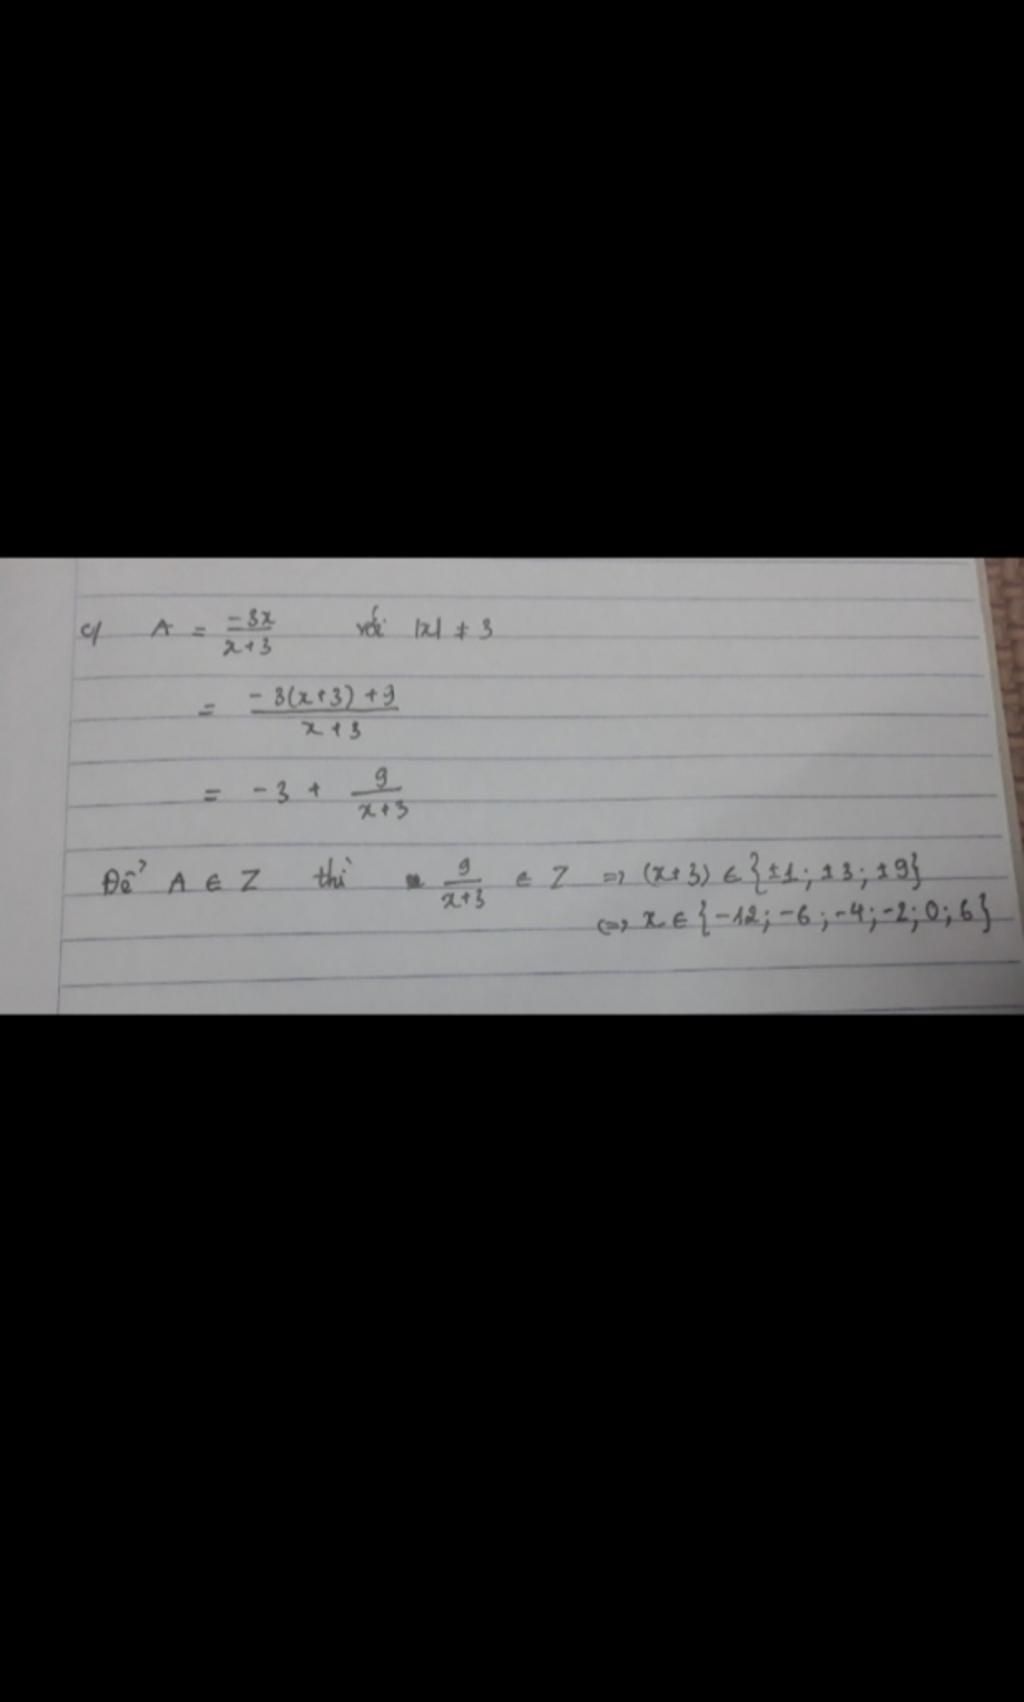 c/ A = -3x/x+3 với |x| ≠ 3
= -3(x+3)+9/x+3
= -3 + 9/x+3
Để A ∈ Z thì 9/x+3 ∈ Z => (x+3) ∈ {±1; ±3; ±9}
<=> x ∈ {-12; -6; -4; -2; 0; 6}